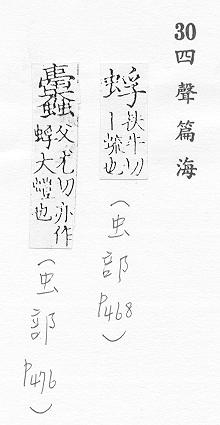 30 四聲篇海
蜉 扶牛切
丨也
(虫部 P468)
父尤切亦作
蜉大螘也
(虫部 P476)